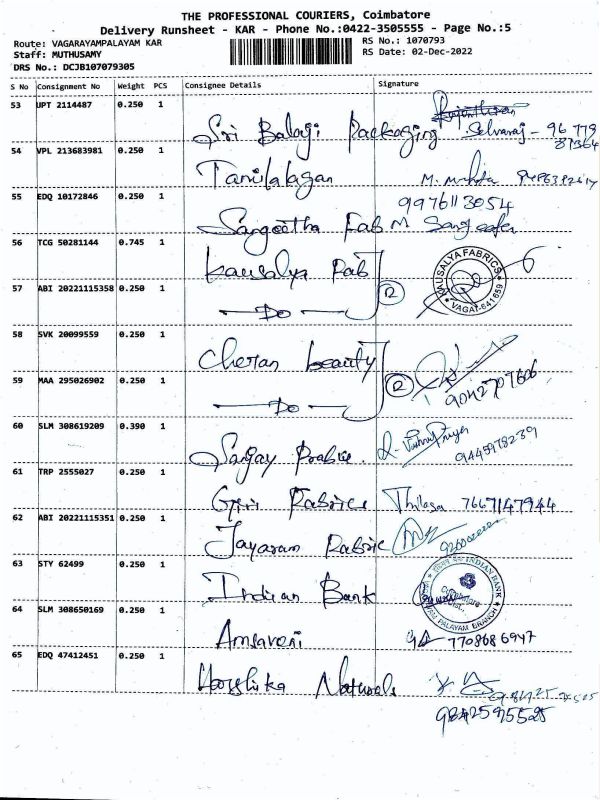 THE PROFESSIONAL COURIERS, Coimbatore
Delivery Runsheet - KAR - Phone No.:0422-3505555 - Page No.:5
Route: VAGARAYAMPALAYAM KAR
RS No.: 1070793
Staff: MUTHUSAMY
RS Date: 02-Dec-2022
DRS No.: DCJB107079305
S No Consignment No Weight PCS Consignee Details Signature
53 UPT 2114487 0.250 1
Sri Balaji Packaging Selvaraj - 96 779
87364
54 VPL 213683981 0.250 1
Tamilalagan
55 EDQ 10172846 0.250 1
9976113054
Sangeetha Fab M Sangeetha
56 TCG 50281144 0.745 1
Kausalya Fab
KAUSALYA FABRICS
VAGAI-641659
57 ABI 20221115358 0.250 1
Do
58 SVK 20099559 0.250 1
Cheran beauty
59 MAA 295026902 0.250 1
9042707606
Do
60 SLM 308619209 0.390 1
Sanjay Fabric
9445978239
61 TRP 2555027 0.250 1
Giri Fabrics Thilaga 7667147944
62 ABI 20221115351 0.250 1
Jayaram Fabric
63 STY 62499 0.250 1
Indian Bank
INDIAN BANK
Coimbatore
Dist.,
PALAYAM BRANCH
64 SLM 308650169 0.250 1
Amsaveni 7708686947
65 EDQ 47412451 0.250 1
Harshika Naturals
9842595525